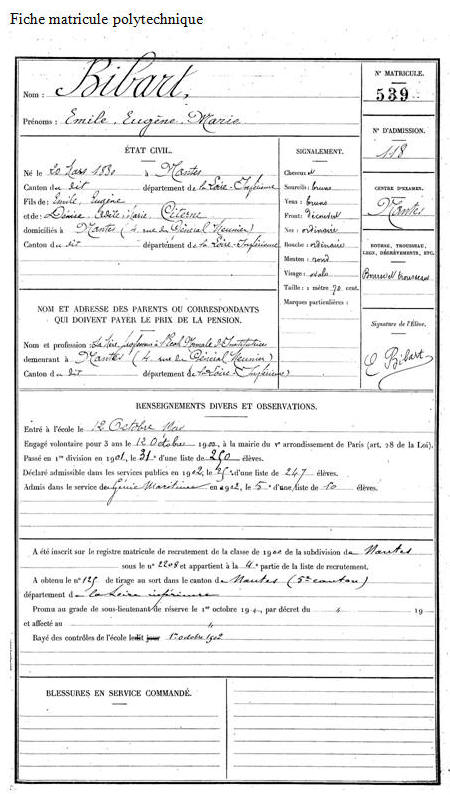 Fiche matricule polytechnique
Nom : Bibart,
Prénoms : Emile, Eugène, Marie
N° MATRICULE.
539
N° D'ADMISSION.
118
CENTRE D'EXAMEN.
Nantes
BOURSE, TROUSSEAU, LEGS, DÉGRÈVEMENTS, ETC.
Bourse et trousseau
Signature de l'Élève.
E Bibart
ÉTAT CIVIL.
Né le 20 Mars 1880 à Nantes
Canton du dit département de la Loire-Inférieure
Fils de : Emile, Eugène
et de : Marie Citerne
domiciliés à Nantes (4 rue du Général Meunier)
Canton du dit département de la Loire-Inférieure
SIGNALEMENT.
Cheveux et
Sourcils : bruns
Yeux : bruns
Front : découvert
Nez : ordinaire
Bouche : ordinaire
Menton : rond
Visage : ovale
Taille : 1 mètre 70 cent.
Marques particulières :
NOM ET ADRESSE DES PARENTS OU CORRESPONDANTS
QUI DOIVENT PAYER LE PRIX DE LA PENSION.
Nom et profession : La Mère, professeur à l'École Normale d'Institutrices
demeurant à Nantes (4 rue du Général Meunier)
Canton du dit département de la Loire-Inférieure
RENSEIGNEMENTS DIVERS ET OBSERVATIONS.
Entré à l'école le 12 Octobre
Engagé volontaire pour 3 ans le 12 Octobre 1900, à la mairie du V° arrondissement de Paris (art. 28 de la Loi).
Passé en 1re division en 1901, le 31e d'une liste de 250 élèves.
Déclaré admissible dans les services publics en 1902, le d'une liste de 247 élèves.
Admis dans le service du Génie Maritime en 1902, le 5e d'une liste de 10 élèves.
A été inscrit sur le registre matricule de recrutement de la classe de 1900 de la subdivision de Nantes
sous le n° 2208 et appartient à la 4e partie de la liste de recrutement.
A obtenu le n° 125 de tirage au sort dans le canton de Nantes (5e canton)
département de la Loire inférieure
Promu au grade de sous-lieutenant de réserve le 1er octobre 19 , par décret du 19
et affecté au "
Rayé des contrôles de l'école ledit jour 1er octobre 1902
BLESSURES EN SERVICE COMMANDÉ.